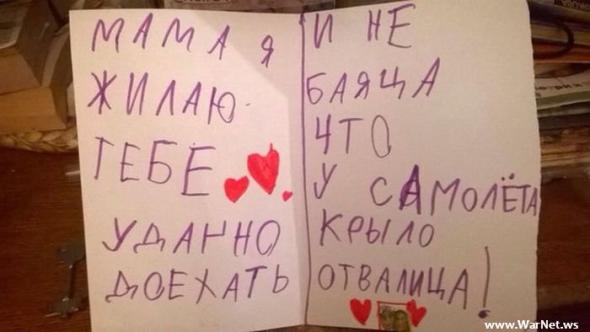 МАМА Я
ЖИЛАЮ
ТЕБЕ
УДАЧНО
ДОЕХАТЬ
И НЕ
БАЯЦА
ЧТО
У САМОЛЁТА
КРЫЛО
ОТВАЛИЦА!
www.WarNet.ws